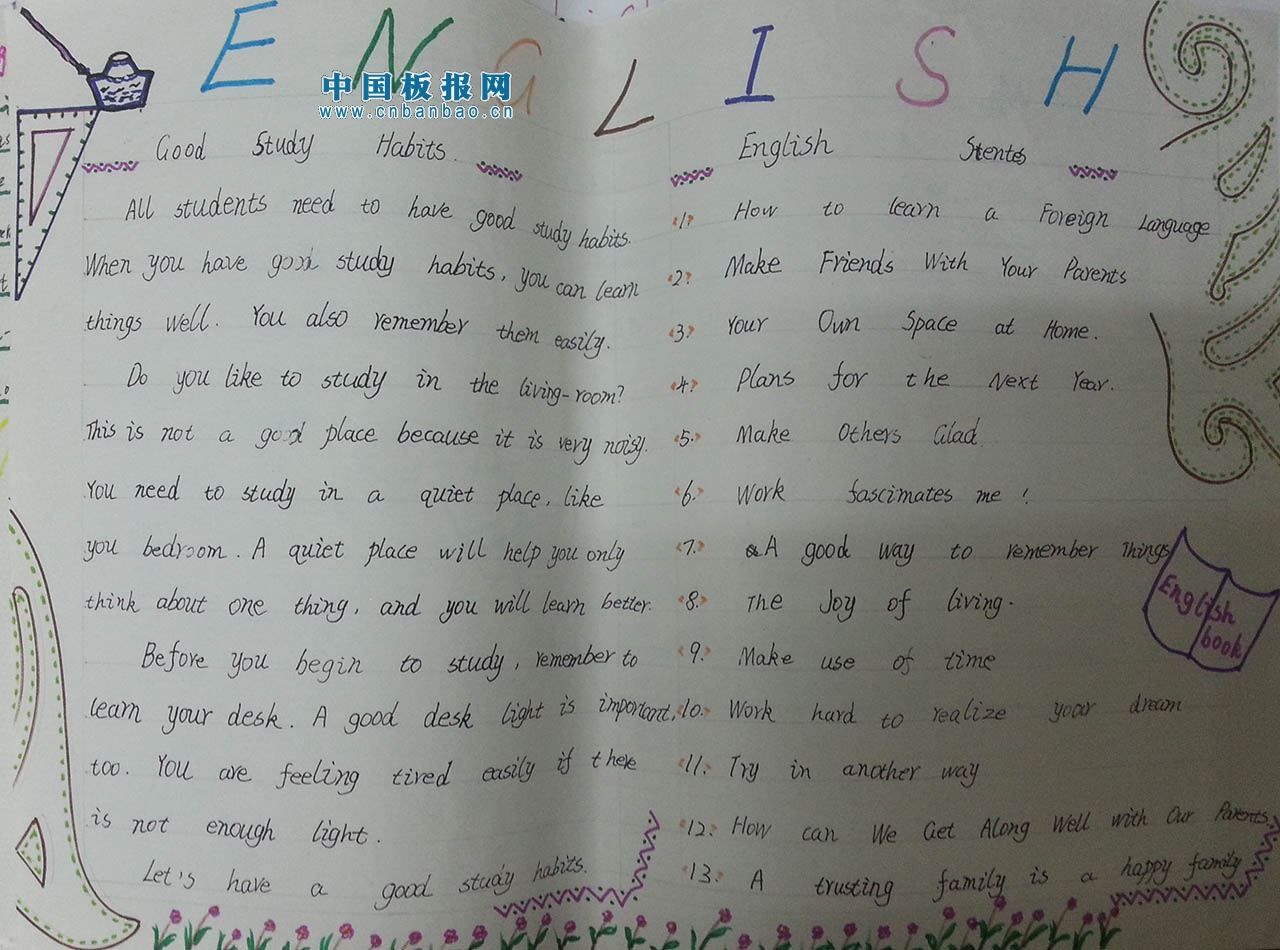 ENGLISH
中国板报网
www.cnbanbao.cn
Good Study Habits.
All students need to have good study habits.
When you have good study habits, you can learn
things well. You also remember them easily.
Do you like to study in the living-room?
This is not a good place because it is very noisy.
You need to study in a quiet place, like
you bedroom. A quiet place will help you only
think about one thing, and you will learn better.
Before you begin to study, remember to
learn your desk. A good desk light is important,
too. You are feeling tired easily if there
is not enough light.
Let's have a good study habits.
English Stentes
1. How to learn a Foreign Language
2. Make Friends With Your Parents
3. Your Own Space at Home.
4. Plans for the Next Year.
5. Make Others Glad
6. Work fascimates me!
7. A good way to remember Things
8. The Joy of living.
9. Make use of time
10. Work hard to realize your dream
11. Try in another way
12. How can We Get Along Well with Our Parents
13. A trusting family is a happy family
English
book